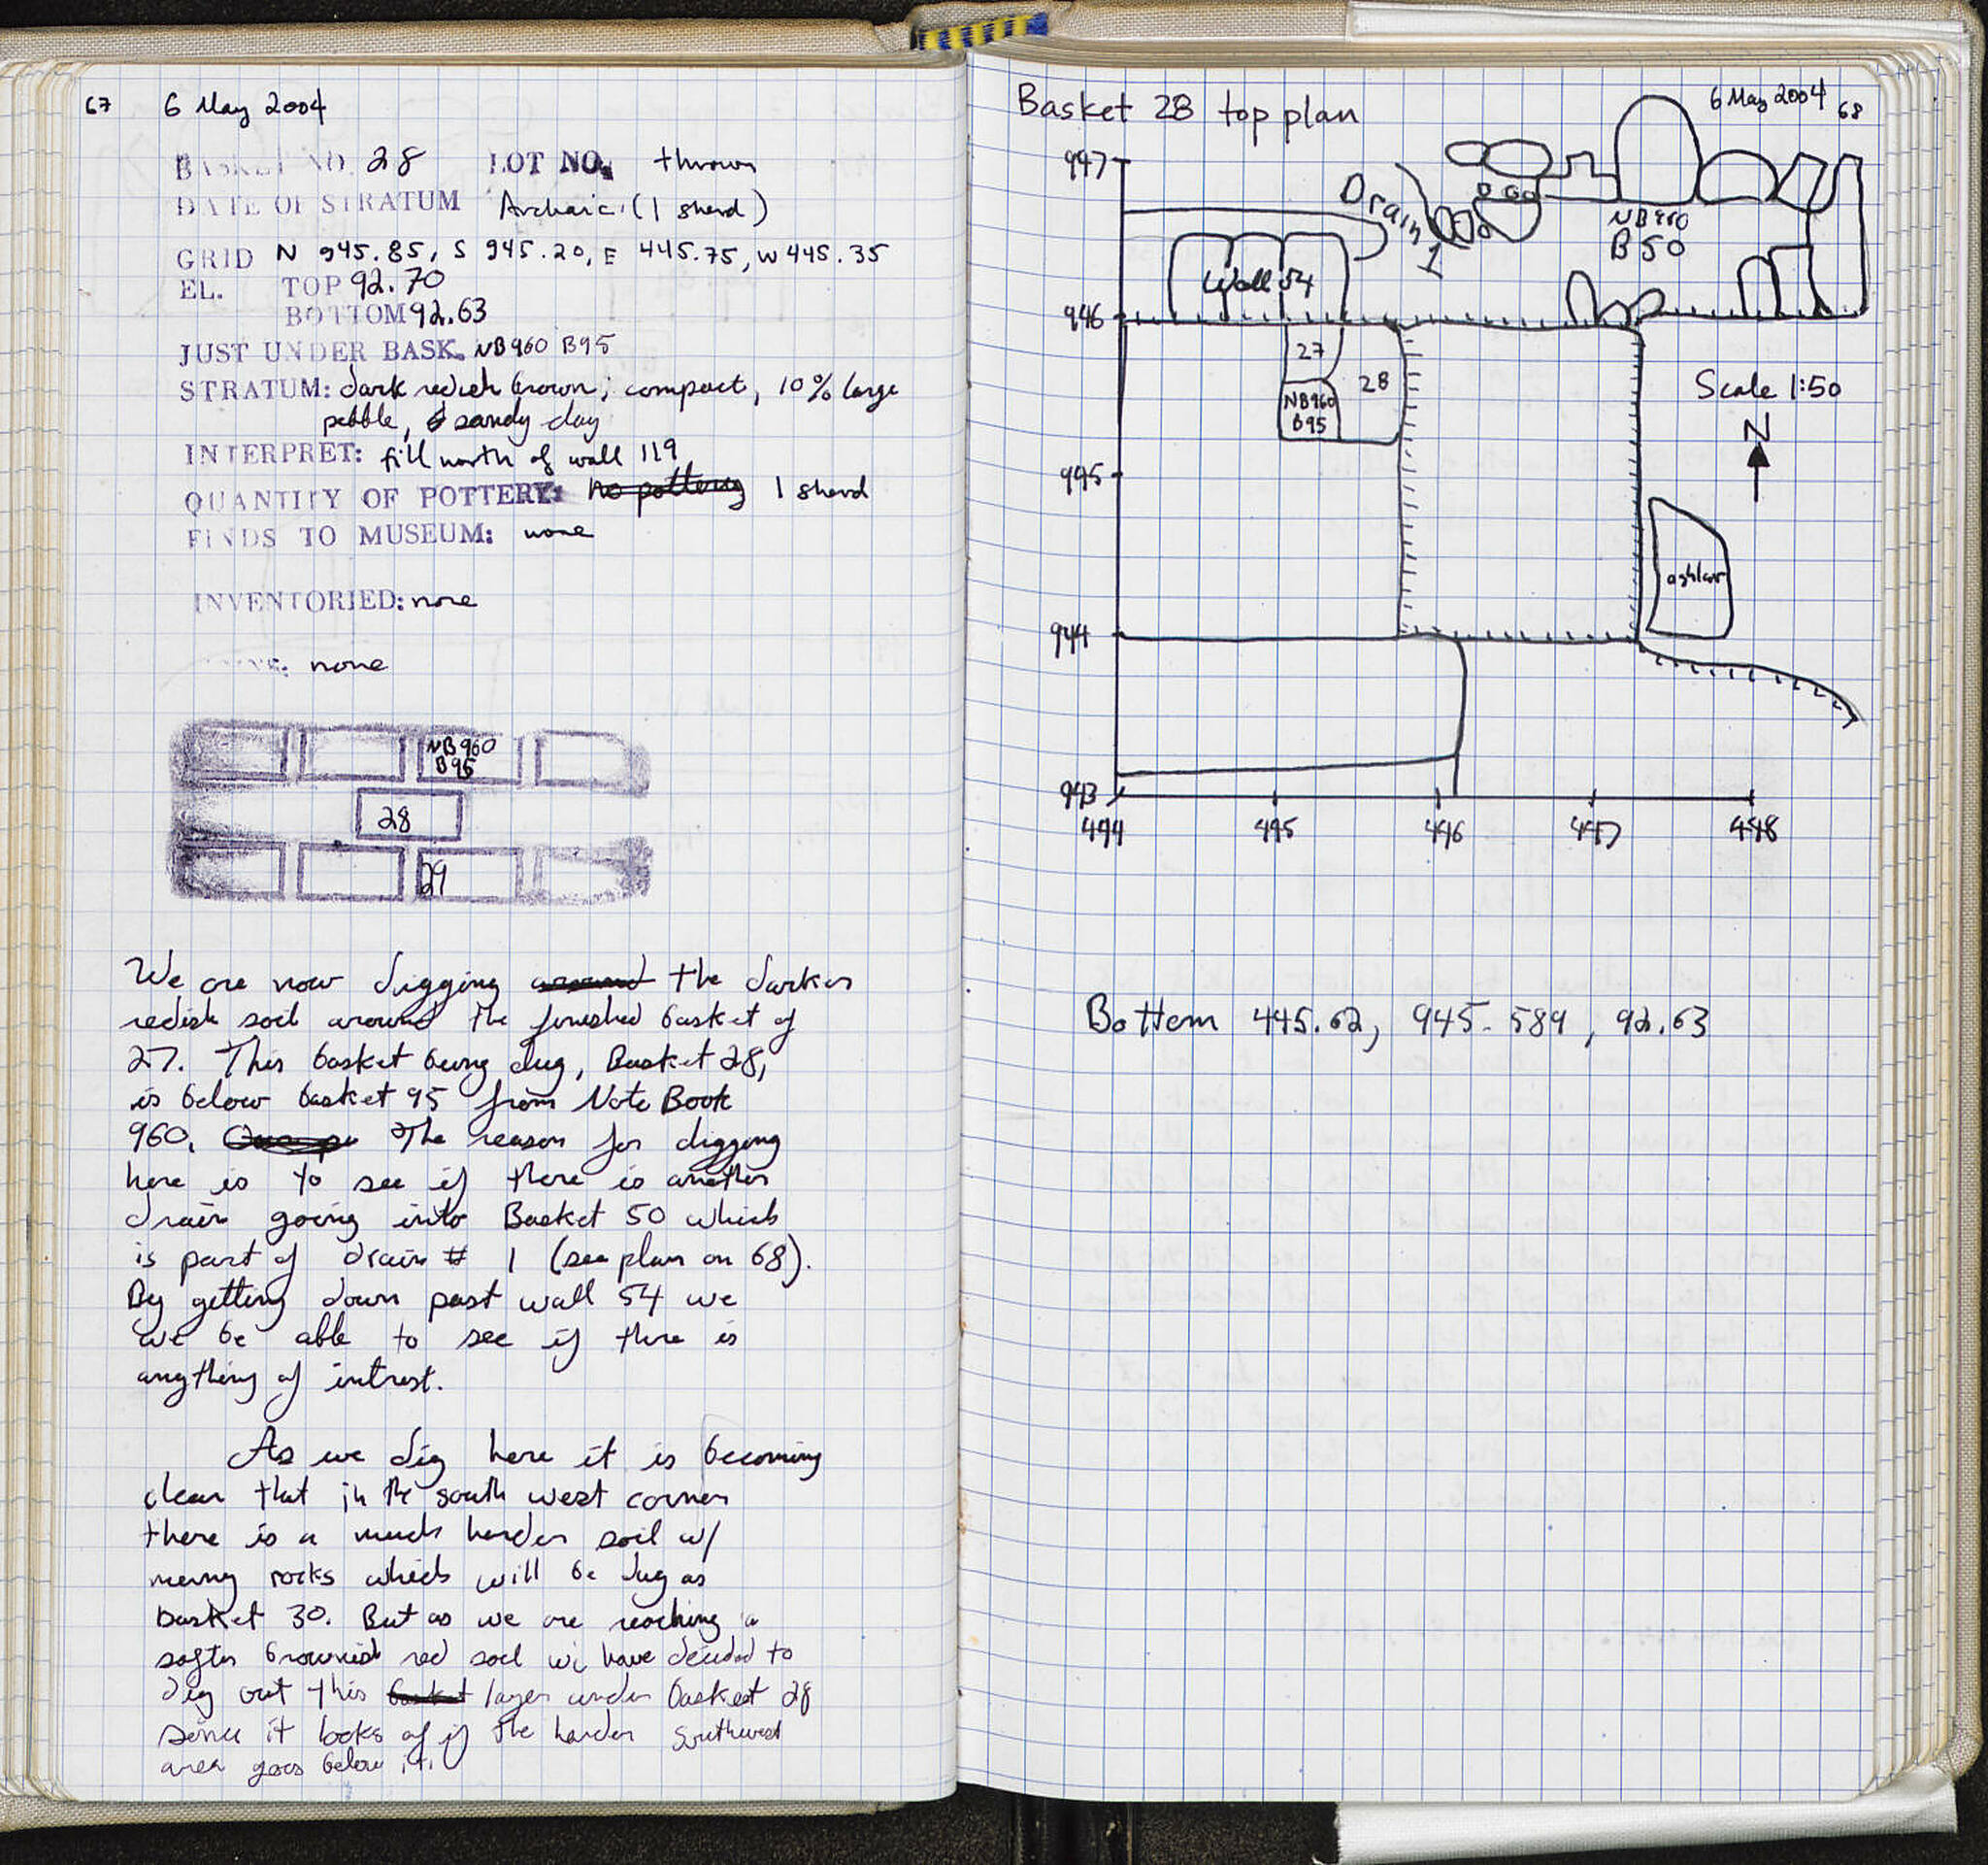 67 6 May 2004
BASKET NO. 28 LOT NO. thrown
DATE OF STRATUM Archaic (1 sherd)
GRID N 945.85, S 945.20, E 445.75, W 445.35
EL. TOP 92.70
BOTTOM 92.63
JUST UNDER BASK. NB960 B95
STRATUM: dark redish brown; compact, 10% large
pebble, sandy clay
INTERPRET: fill north of wall 119
QUANTITY OF POTTERY: no pottery 1 sherd
FINDS TO MUSEUM: none
INVENTORIED: none
none
NB960
B95
28
29
We are now digging around the darker
redish soil around the finished basket of
27. This basket being dug, Basket 28,
is below basket 95 from Note Book
960. The reason for digging
here is to see if there is another
drain going into Basket 50 which
is part of drain # 1 (see plan on 68).
By getting down past wall 54 we
we be able to see if there is
anything of intrest.
As we dig here it is becoming
clear that in the south west corner
there is a much harder soil w/
many rocks which will be dug as
basket 30. But as we are reaching a
softer brownish red soil we have decided to
dig out this basket layer under basket 28
since it looks of if the harder Southwest
area goes below it.
Basket 28 top plan
6 May 2004 68
947
Drain 1
NB960
B50
Wall 54
946
27
28
NB960
B95
Scale 1:50
N
945
ashlar
944
943
444 445 446 447 448
Bottom 445.62, 945.589, 92.63